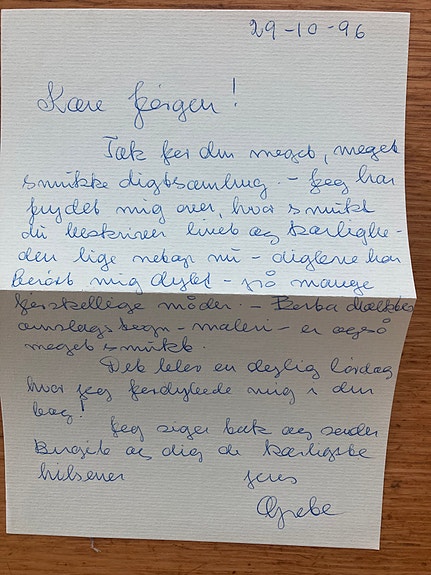 29-10-96
Kære Jørgen!
Tak for din meget, meget
smukke digtsamling - Jeg har
frydet mig over, hvor smukt
du beskriver livet og kærlighe-
den lige netop nu - digtene har
Berørt mig dybt - på mange
forskellige måder. -
omslagstegn - maleri - er også
meget smukt.
Det blev en dejlig lørdag
hvor jeg fordybede mig i din
bog!
Jeg siger tak og sender
Birgit og dig de kærligste
hilsener
jeres
Grete